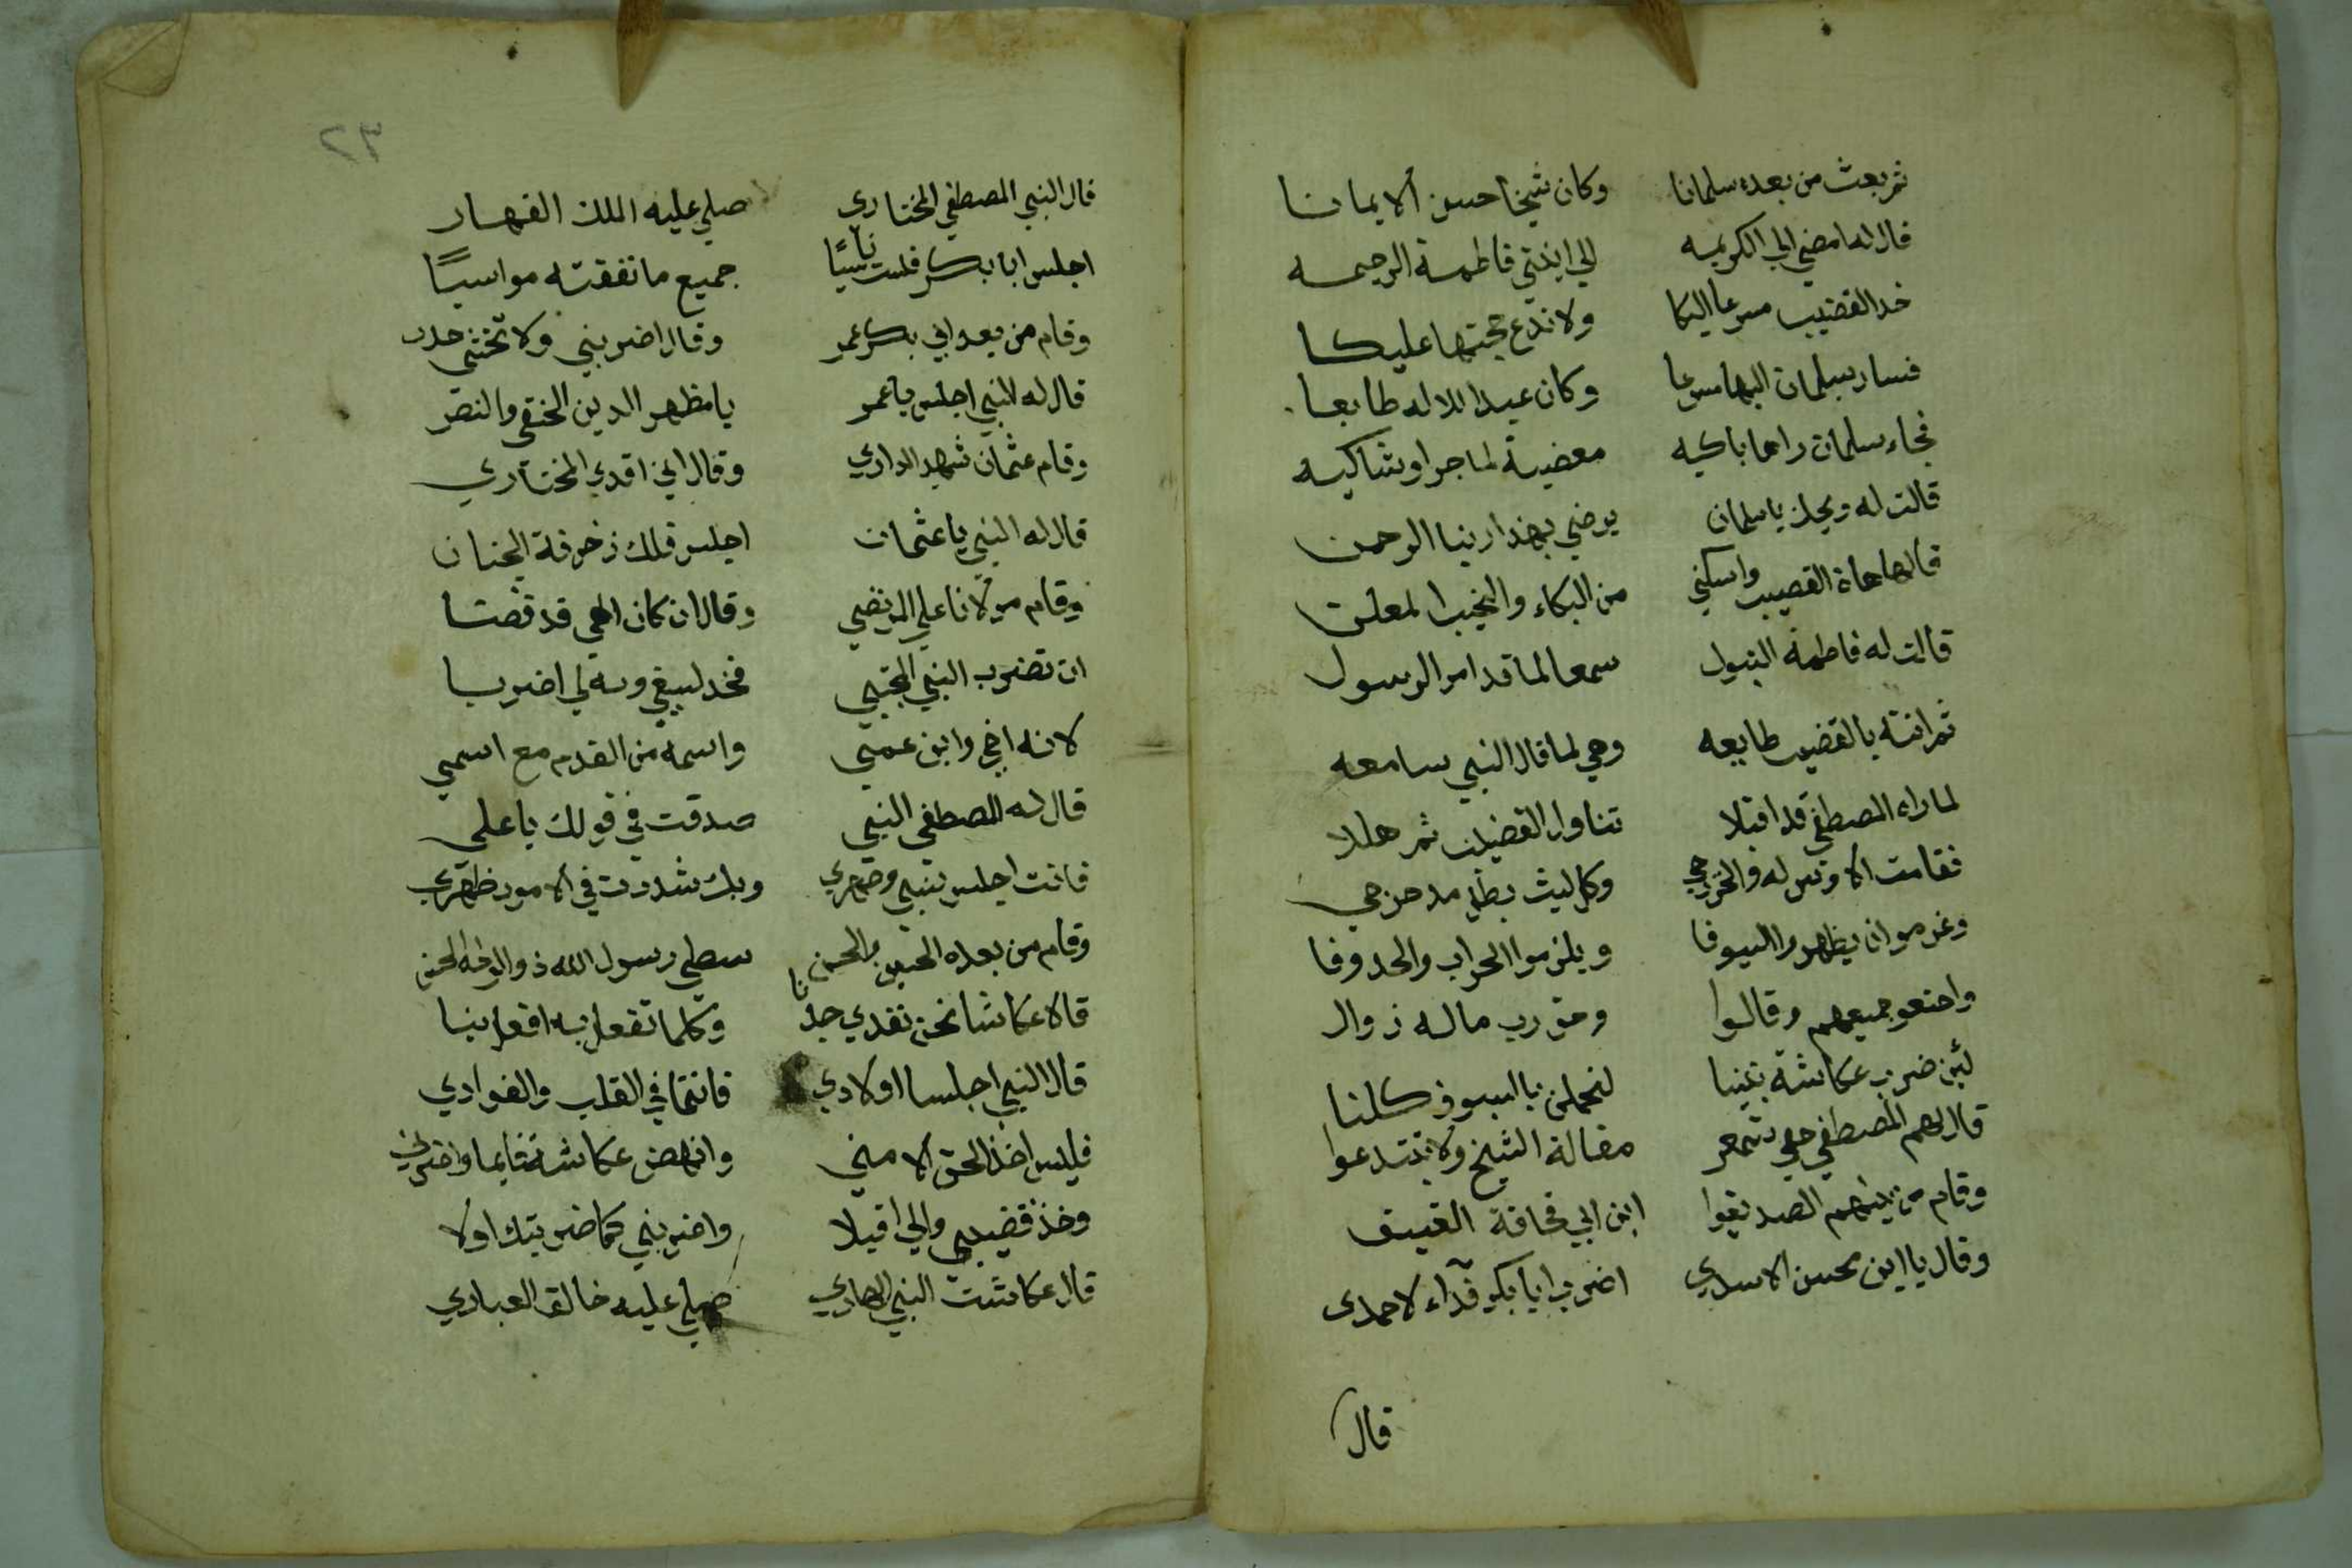 ثم بعث من بعده سلمانا وكان شيخا حسن الايمانا
قال له امضي الي الكريمه الي ابنتي فاطمة الرحيمه
خد القضيب مسرعا اليكا ولا تدع حجتها عليكا
فسار سلمان اليها مسرعا وكان عبدا للاله طايعا
فجاء سلمان راها باكيه مغضبة لما جرا وشاكيه
قالت له ويحك يا سلمان يرضي بهذا ربنا الرحمن
قال لها هاة القضيب واسكني من البكاء والنحيب
قالت له فاطمة البتول سمعا لما قد امر الرسول
ثم اتته بالقضيب طايعه وهي لما قال النبي سامعه
لما راه المصطفي قد اقبلا تناول القضيب ثم هللا
فقامت الاوس له والخزرجي وكل ليث بطل مدحزجي
وعزموا ان يظهروا السيوفا ويلزموا الحراب والحدوفا
واجتمعو جميعهم وقالوا وحق رب ماله زوال
لئن ضرب عكاشة نبينا لنحملن بالسيوف كلنا
قال لهم المصطفي حتي تسمعوا مقالة الشيخ ولا تبتدعوا
وقام من بينهم الصديقوا ابن ابي قحافة العتيق
وقال يا ابن محسن الاسدي اضرب ابا بكر فداء لاحمدي
قال
٢٣
قال النبي المصطفي المختاري صلي عليه الملك القهار
اجلس ابا بكر فلست ناسيًا جميع ما نفقته مواسيًا
وقام من بعد ابي بكر عمر وقال اضربني ولا تخشي حدر
قال له النبي اجلس يا عمر يا مظهر الدين الحنقي والنصر
وقام عثمان شهيد الداري وقال اني افدي المختاري
قال له النبي يا عثمان اجلس فلك زخرفة الجنان
وقام مولانا علي المرتضي وقال ان كان الهي قد قضا
ان تضرب النبي المجتبي فخد لسيفي وبه لي اضربا
لانه اخي وابن عمي واسمه من القدم مع اسمي
قال له المصطفي النبي صدقت في قولك يا علي
فانت اجلس بنبي وصهري وبك شددت في الامور ظهري
وقام من بعده الحسين والحسن سبطي رسول الله ذو الوجه الحسن
قالا عكاشا نحن نفدي جدنا وكلما تفعل به افعل بنا
قال النبي اجلسا اولادي فانتما في القلب والفوادي
فليس اخذ الحق الا مني وانهض عكاشة قايما واضربني
وخذ قضيبي والي اقبلا واضربني كما ضربتك اولا
قال عكاشت النبي الهادي صلي عليه خالق العبادي